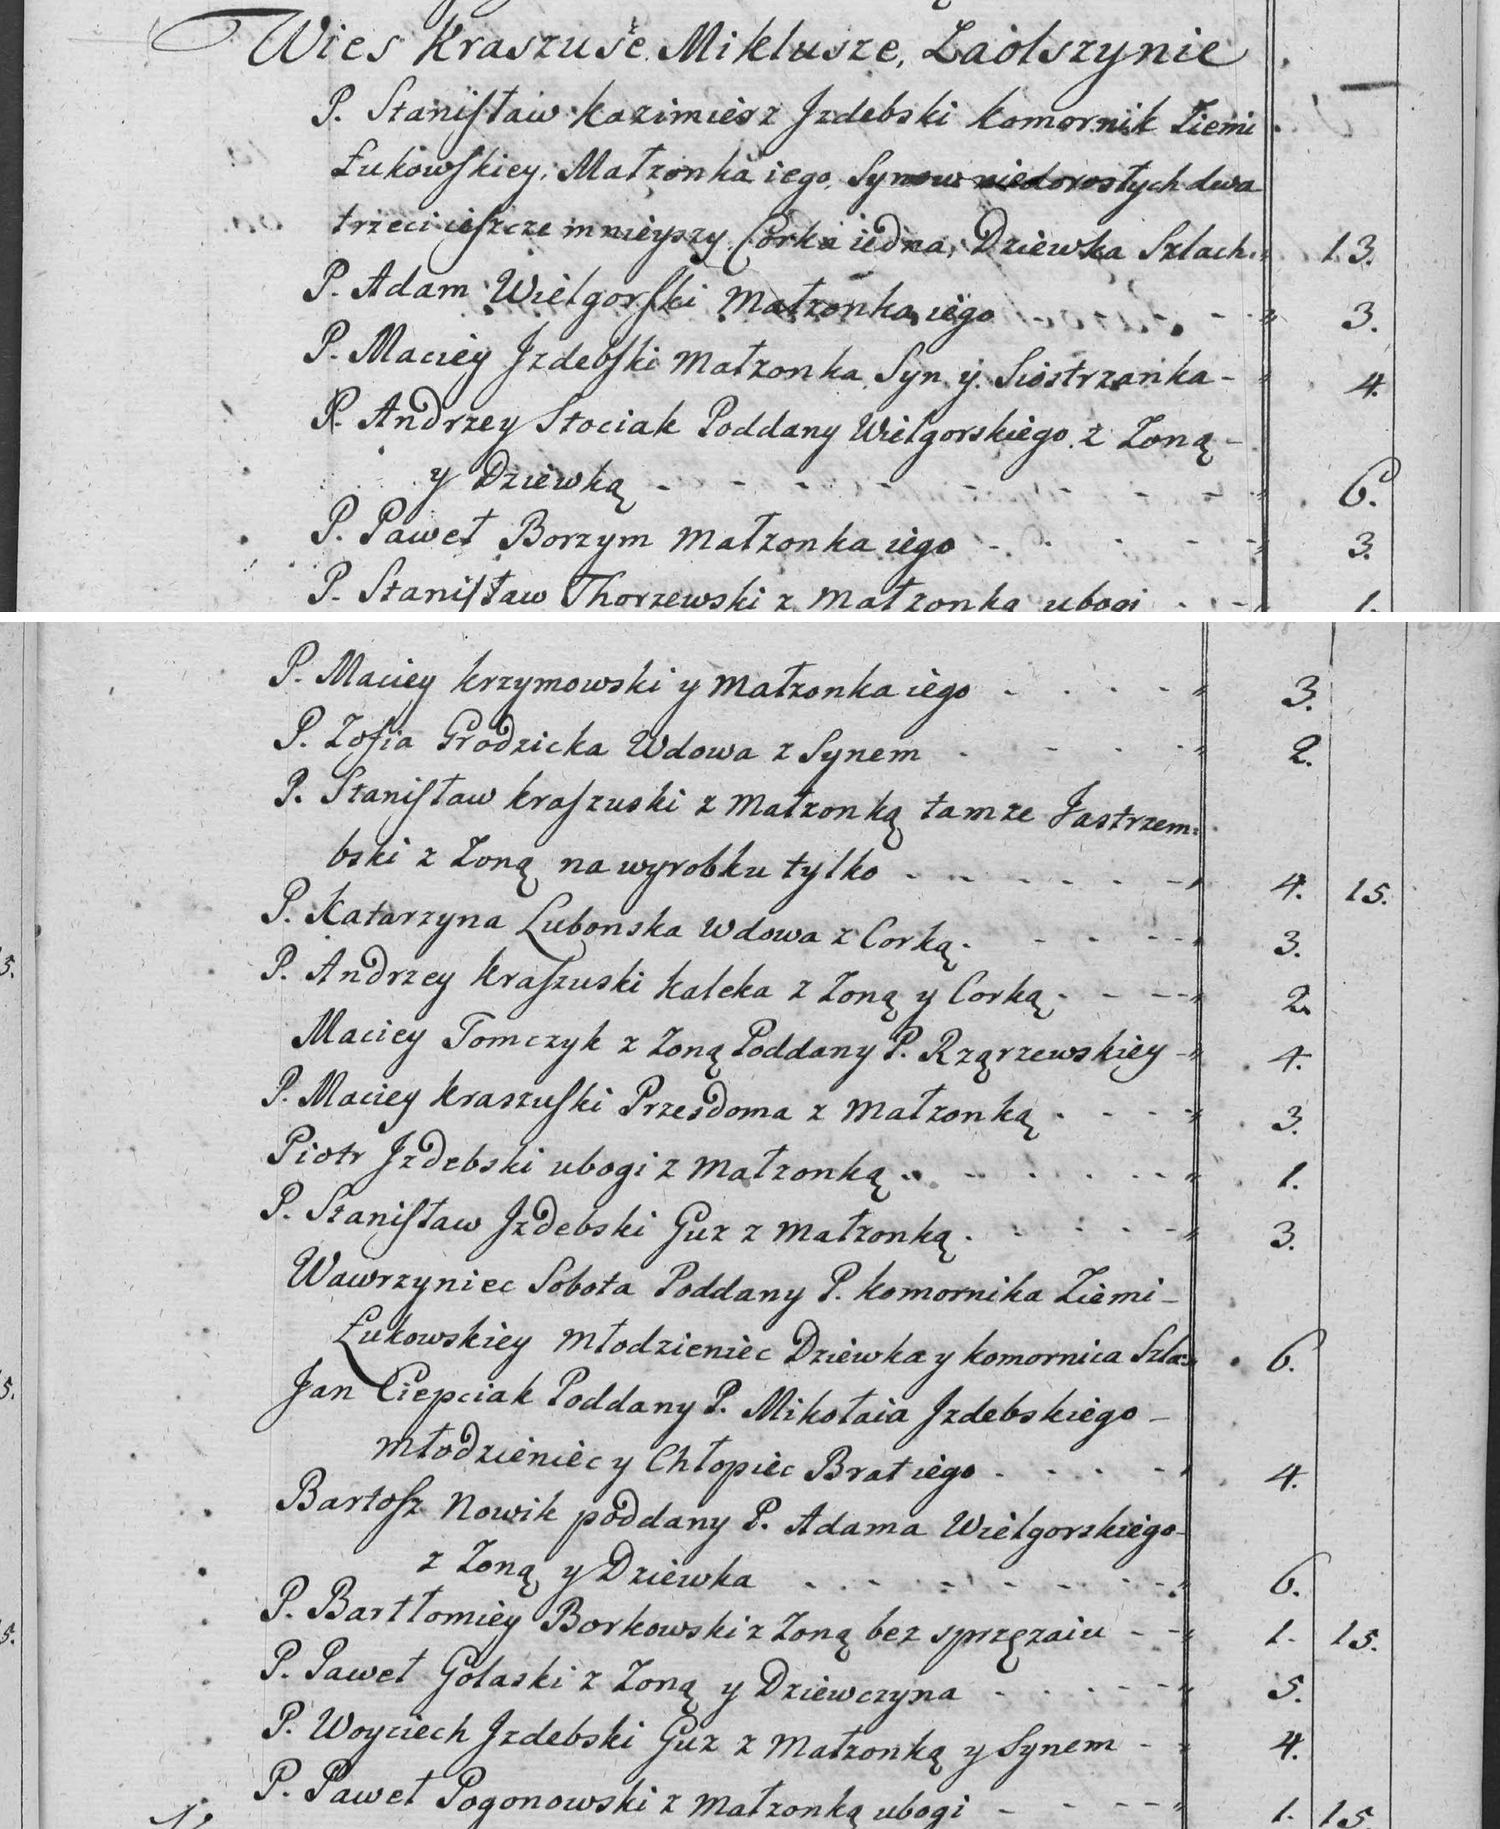 Wies Kraszuse Miklusze, Zaolszynie
P. Stanisław Kazimierz Jzdebski Komornik Ziemi
Łukowskiey, Małzonka iego, Synow niedorosłych dwa
trzeci ieszcze mnieyszy Corka iedna, Dziewka Szlach. 13.
P. Adam Wielgorski Małzonka iego 3.
P. Maciey Jzdebski Małzonka Syn y Siostrzanka - 4.
P. Andrzey Stociak Poddany Wielgorskiego z Zoną -
y Dziewką - - - - 6.
P. Paweł Borzym Małzonka iego - - - 3.
P. Stanisław Thorzewski z Małzonką ubogi - - 1.
P. Maciey Krzymowski y Małzonka iego - - - 3.
P. Zofia Grodzicka Wdowa z Synem - - - 2.
P. Stanisław Kraszuski z Małzonką tamze Jastrzem=
bski z Zoną na wyrobku tylko - - - 4. 15.
P. Katarzyna Lubonska Wdowa z Corką - - - 3.
P. Andrzey Kraszuski kaleka z Zoną y Corką - - - 2.
Maciey Tomczyk z Zoną Poddany P. Rzążewskiey - 4.
P. Maciey Kraszuski Przesdoma z Małzonką - - - 3.
Piotr Jzdebski ubogi z Małzonką - - - 1.
P. Stanisław Jzdebski Guz z Małzonką - - - 3.
Wawrzyniec Sobota Poddany P. Komornika Ziemi -
Łukowskiey Młodzieniec Dziewka y Komornica Szla: 6.
Jan Ciepciak Poddany P. Mikołaia Jzdebskiego -
Młodzieniec y Chłopiec Brat iego - - - 4.
Bartosz Nowik poddany P. Adama Wielgorskiego -
z Zoną y Dziewka - - - 6.
P. Bartłomiey Borkowski z Zoną bez sprzęzaiu - - 1. 15.
P. Paweł Golaski z Zoną y Dziewczyna - - - 5.
P. Woyciech Jzdebski Guz z Małzonką y Synem - 4.
P. Paweł Pogonowski z Małzonką ubogi - - - 1. 15.